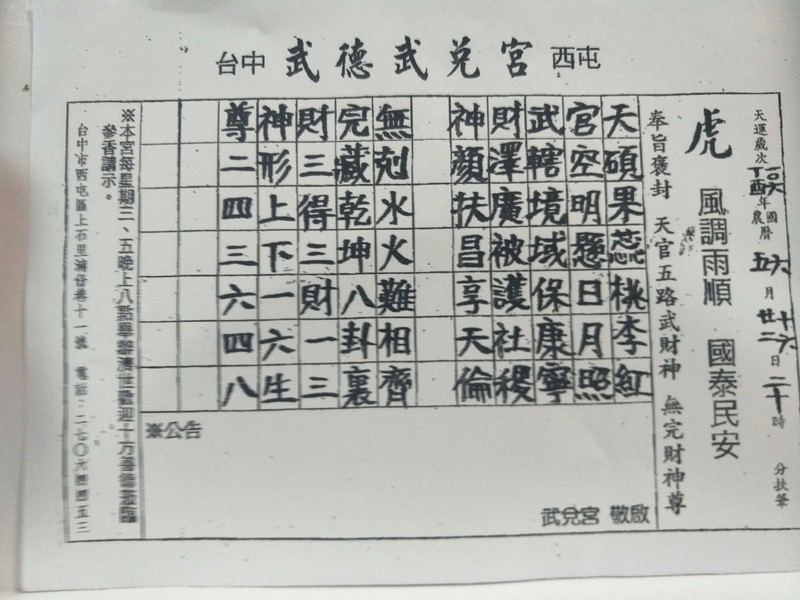 台中 武德武兌宮 西屯
天運歲次丁酉年國曆六月十六日二十時 分扶筆
農曆五 廿二
虎 風調雨順 國泰民安
奉旨褒封 天官五路武財神 無完財神尊
天碩果蕊桃李紅
官空明懸日月照
武轄境域保康寧
財澤廣被護社稷
神顏扶昌享天倫
無剋水火難相齊
完藏乾坤八卦裏
財三得三財一三
神形上下一六生
尊二四三六四八
※公告
武兌宮 敬啟
※本宮每星期三、五晚上八點舉辦濟世歡迎十方善信蒞臨
參香請示。
台中市西屯區上石里 巷十一號 電話：二七〇六